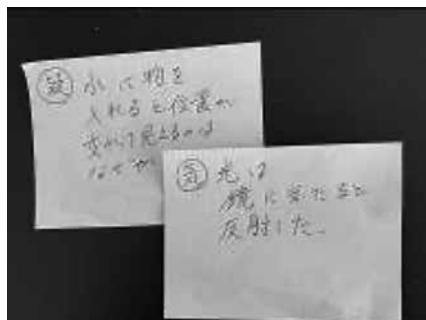 疑 水に物を
入れると位置が
変わって見えるのは
なぜか
気 光は
鏡に当たると
反射した。